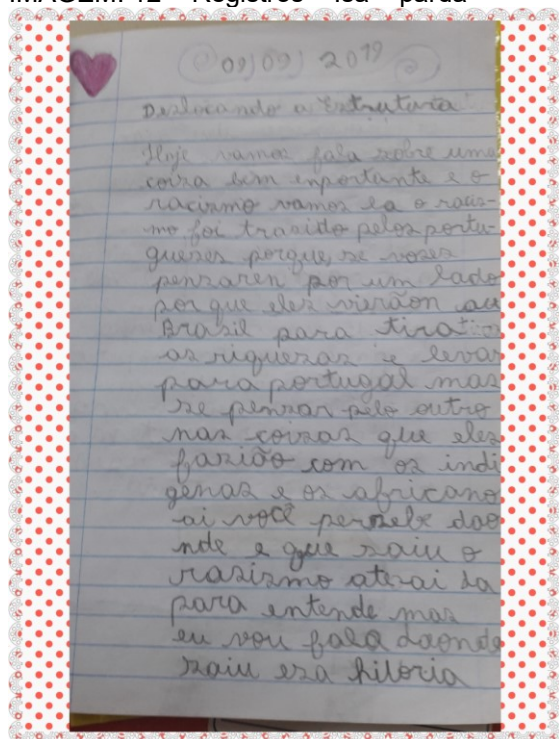 IMAGEM 12 Registros Isa parda
09/09/2019
Deslocando a Estrutura
Hoje vamos fala sobre uma
coiza bem enportante e o
racizmo vamos la o raciz-
mo foi trazido pelos portu-
gueses porque se voses
pensaren por um lado
por que eles vierãon au
Brasil para tirar
as riquezas e levar
para portugal mas
se pensar pelo outro
nas coizas que eles
fazião com os indi
genas e os africano
ai você persebe dao
nde e que saiu o
rasizmo ate ai da
para entende mas
eu vou fala daonde
saiu esa hitoria